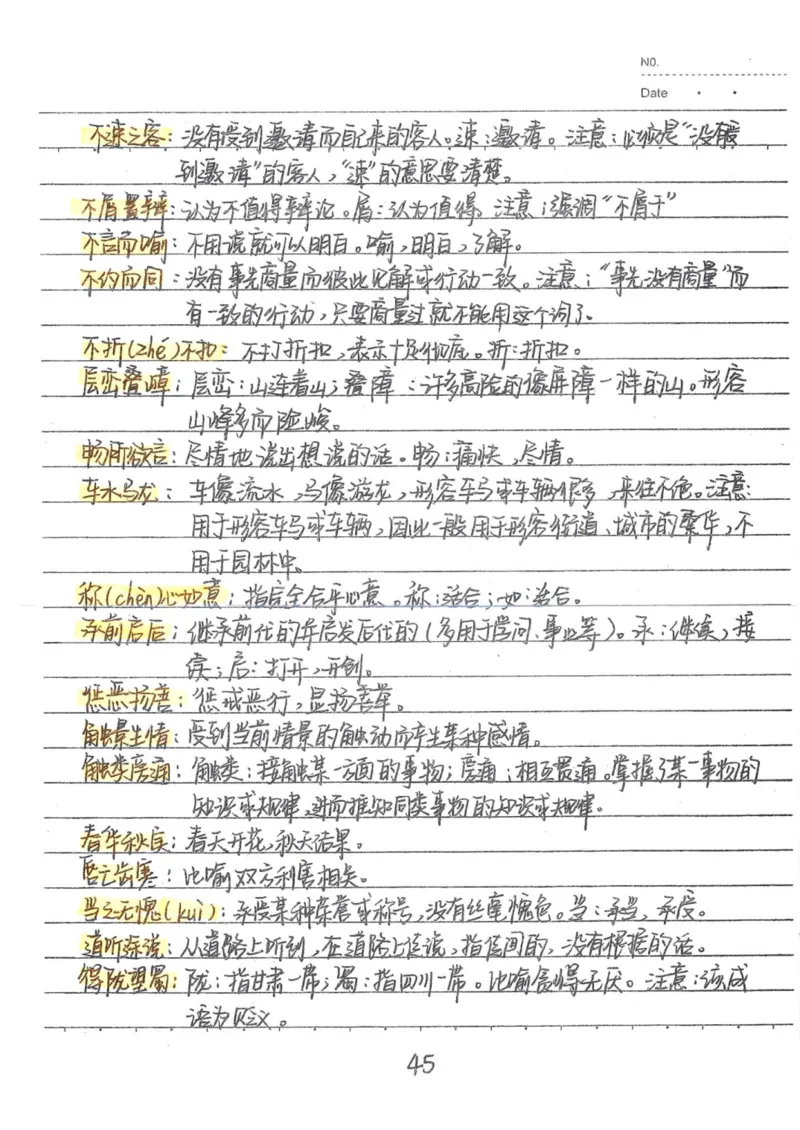 NO.
Date
不速之客：没有受到邀请而自己来的客人。速：邀请。注意：必须是“没有受
到邀请”的客人，“速”的意思要清楚。
不屑置辩：认为不值得辩论。屑：认为值得。注意：强调“不屑于”
不言而喻：不用说就可以明白。喻，明白，了解。
不约而同：没有事先商量而彼此见解或行动一致。注意：“事先没有商量”而
有一致的行动，只要商量过就不能用这个词了。
不折(zhé)不扣：不打折扣，表示十足彻底。折：折扣。
层峦叠嶂：层峦：山连着山；叠障：许多高险的像屏障一样的山。形容
山峰多而险峻。
畅所欲言：尽情地说出想说的话。畅：痛快，尽情。
车水马龙：车像流水，马像游龙，形容车马或车辆很多，来往不绝。注意：
用于形容车马或车辆，因此一般用于形容街道、城市的繁华，不
用于园林中。
称(chèn)心如意：指完全合乎心意。称：适合；如：适合。
承前启后：继承前代的并启发后代的(多用于学问、事业等)。承：继续，接
续；启：打开，开创。
惩恶扬善：惩戒恶行，显扬善举。
触景生情：受到当前情景的触动而产生某种感情。
触类旁通：触类：接触某一方面的事物；旁通：相互贯通。掌握了某一事物的
知识或规律，进而推知同类事物的知识或规律。
春华秋实：春天开花，秋天结果。
唇亡齿寒：比喻双方利害相关。
当之无愧(kuì)：承受某种荣誉或称号，没有丝毫愧色。当：承当，承受。
道听途说：从道路上听到，在道路上述说，指传闻的，没有根据的话。
得陇望蜀：陇：指甘肃一带；蜀：指四川一带。比喻贪得无厌。注意：该成
语为贬义。
45